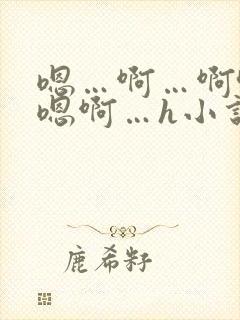 嗯…啊…啊
嗯啊…h小
鹿希籽